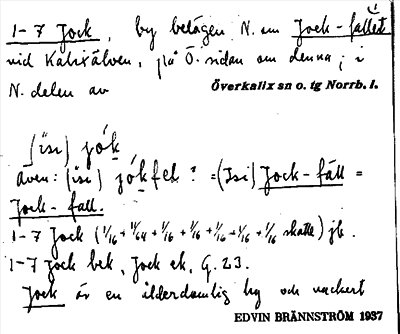 1-7 Jock, by belägen N. om Jock-fallet
vid Kalixälven, på Ö. sidan om denna, i
N. delen av Överkalix sn o. tg Norrb. l.
(isi) jók
Även: (isi) jókfeł ? = (Isi) Jock-fäll =
Jock-fall.
1-7 Jock (1/16 + 1/64 + 1/16 + 1/16 + 1/16 + 1/16 + 1/16 skatte) jb.
1-7 Jock bek, Jock ek, G. 23.
Jock är en ålderdomlig by och vackert
EDVIN BRÄNNSTRÖM 1937